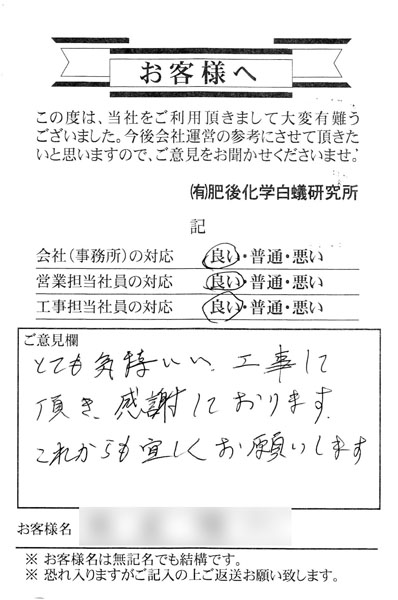 お客様へ
この度は、当社をご利用頂きまして大変有難う
ございました。今後会社運営の参考にさせて頂きた
いと思いますので、ご意見をお聞かせくださいませ。
㈲肥後化学白蟻研究所
記
会社(事務所)の対応 良い・普通・悪い
営業担当社員の対応 良い・普通・悪い
工事担当社員の対応 良い・普通・悪い
ご意見欄
とても気持いい、工事して
頂き、感謝しております。
これからも宜しくお願いします
お客様名
※ お客様名は無記名でも結構です。
※ 恐れ入りますがご記入の上ご返送お願い致します。